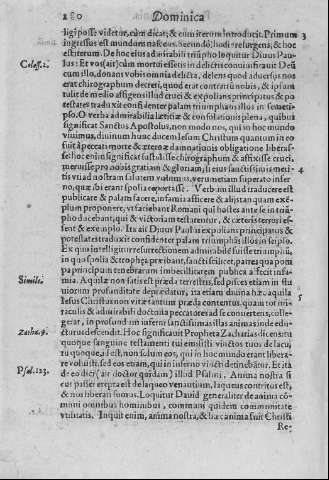 280 Dominica
ligi posse videtur, cùm dicat, & cum iterum introducit. Primum 3
ingressus est mundum nascens. Secundò, hodie resurgens, & hoc
est iterum. De hoc eius admirabili triumpho loquitur Diuus Pau-
Coloss. 2. lus: Et vos (ait) cùm mortui essetis in delictis conuiuificauit Deus
cum illo, donans vobis omnia delicta, delens quod aduersus nos
erat chirographum decreti, quod erat contrarium nobis, & ipsum
tulit de medio affigens illud cruci & expolians principatus & po
testates traduxit confidenter palam triumphans illos in semeti-
pso. O verba admirabilia lætitiæ & consolationis plena, quibus
significat Sanctus Apostolus, non modo nos, qui in hoc mundo
viuimus, diuinum hunc ducem Iesum Christum quantum in eo
fuit à peccati morte & æternæ damnationis obligatione liberas-
se: hoc enim significat sustulisse chirographum & affixisse cruci,
meruisse pro nobis gratiam & gloriam, si eius sanctissimis meri- 4
tis vti ad nostram salutem volumus, verum etiam superato infer
no, quæ ibi erant spolia reportasse. Verbum illud traducere est
publicare & palam facere, infamia afficere & alijs tanquam exe-
plum proponere, vt faciebant Romani qui hostes ante se in triũ-
pho ducebant, qui & victoriam testarentur, & cæteris terrori es-
sent & exemplo. Ita ait Diuus Paulus expolians principatus &
potestates traduxit confidenter palam triumphãs illos in seipso.
Ex quo intelligitur resurrectionem admirabilẽ fuisse triumphũ,
in quo spolia & trophęa præibant, sancti scilicet, parrea qua pom
pa principum tenebrarum imbecillitatem publica affecit infa-
Simile. mia. Aquilæ non satis est præda terrestris, sed pisces etiam in flu
uiorum profunditate depræedatur, ita etiam diuina hæc aquila
Iesus Christus non vitæ tantum præda contentus, quam tot mi- 5
raculis & admirabili doctrina peccatores ad se conuertens, colle-
gerat, in profundum inferni iam sanctissimas illas animas inde edu-
Zacha. 9. cturus descendit. Hoc significauit Propheta Zacharias dicens: tu
quoque sanguine testamenti tui emisisti vinctos tuos de lacu,
tu quoque, id est, non solum eos, qui in hoc mundo erant libera-
re voluisti, sed eos etiam, qui in inferno vincti detinebātur. Et ita
Psal. 123. de eo dici (ait doctor quidam) illud Psalmi. Anima nostra si
cut passer erepta est de laqueo venantium, laqueus contritus est,
& nos liberati sumus. Loquitur Dauid generaliter de anima cõ-
muni omnibus hominibus, communi quidem communitate
vtilitatis. Inquit enim, anima nostra, & hæc anima fuit Christi
Re-